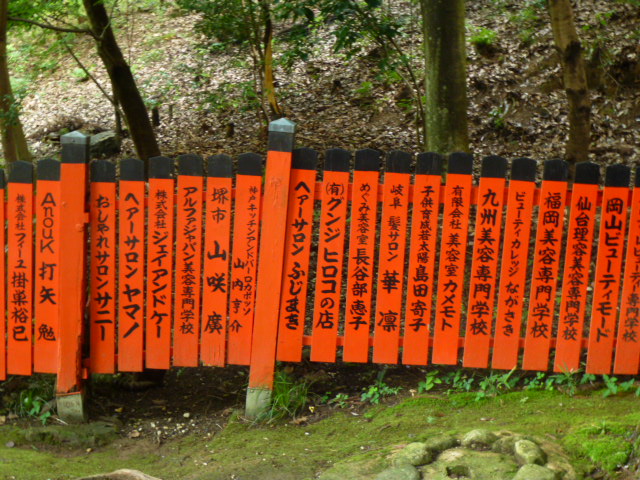 株式会社フィーユ 掛巣裕巳
AnouK 打矢 勉
おしゃれサロンサニー
ヘアーサロン ヤマノ
株式会社 ジェイアンドケー
アルファジャパン美容専門学校
堺市 山咲 廣
神戸キッチンアンドバー ロボツソン 山内亨介
ヘアーサロン ふじまき
(有)グンジ ヒロコの店
めぐみ美容室 長谷部 恵子
岐阜 髪サロン 華 凛
子供育成芸太陽 島田 寄子
有限会社 美容室 カメモト
九州美容専門学校
ビューティカレッジ ながさき
福岡美容専門学校
仙台理容美容専門学校
岡山ビューティモード